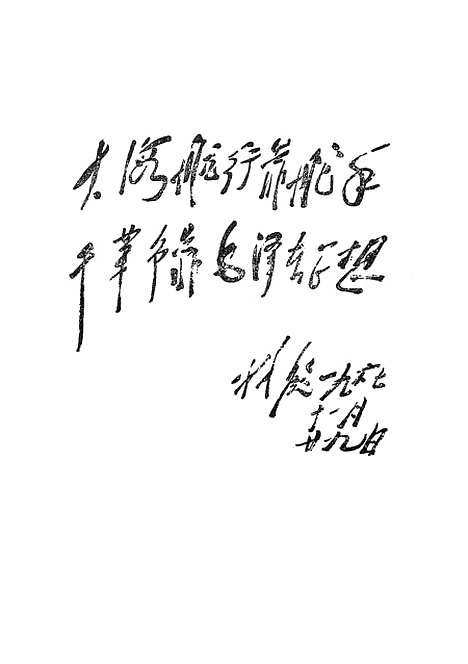 大海航行靠舵手
干革命靠毛泽东思想
林彪一九六七
十一月
廿九日